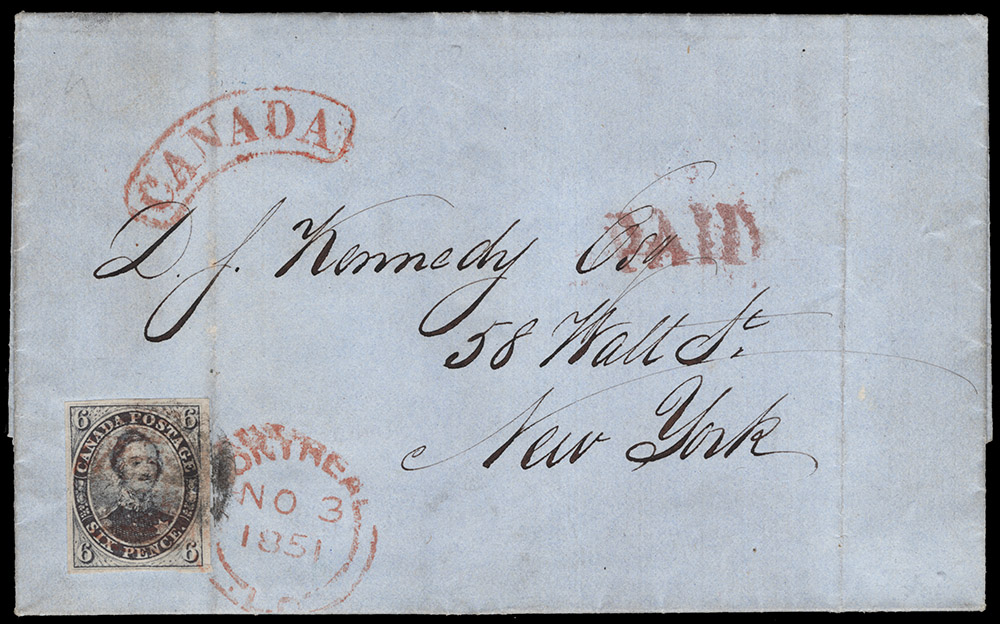 CANADA
PAID
D. J. Kennedy Esq
58 Wall St.
New York
6 6
CANADA POSTAGE
SIX PENCE.
6 6
MONTREAL
NO 3
1851